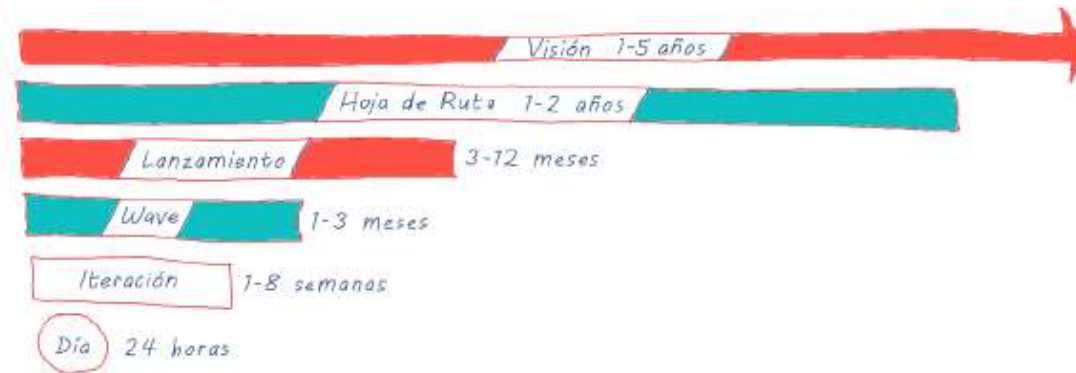 Visión 1-5 años
Hoja de Ruta 1-2 años
Lanzamiento 3-12 meses
Wave 1-3 meses
Iteración 1-8 semanas
Día 24 horas